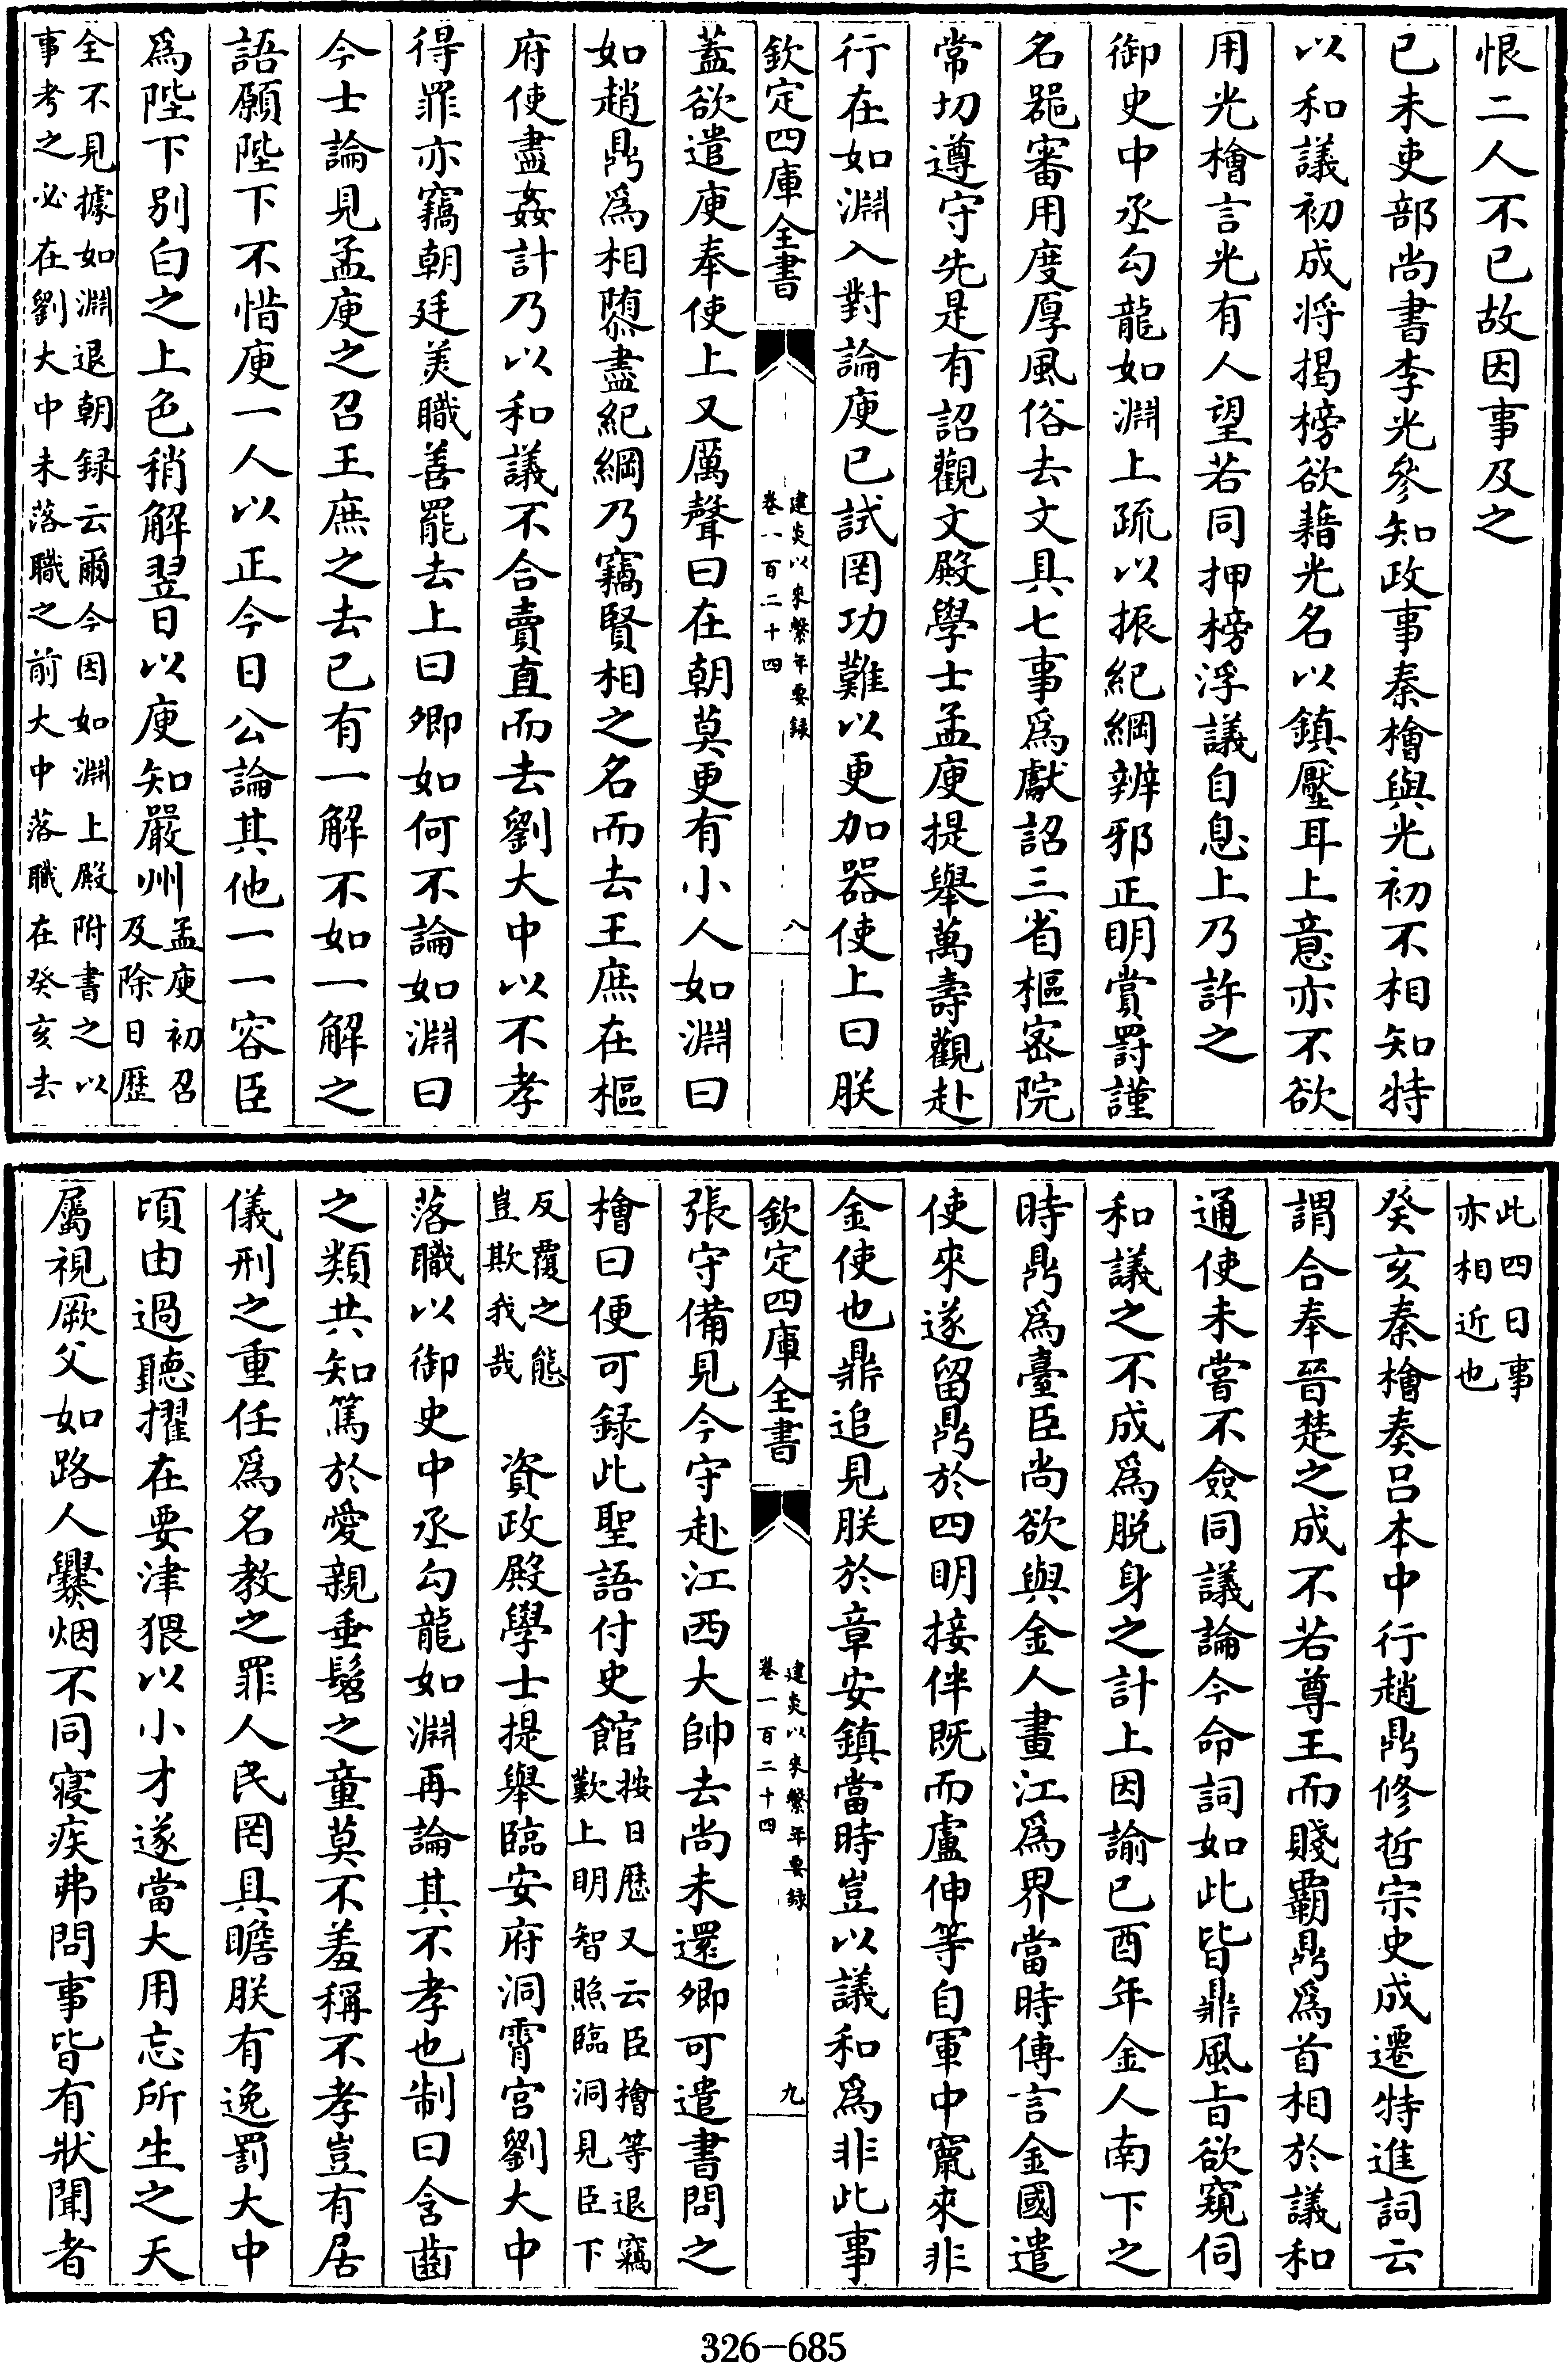 恨二人不已故因事及之
已未吏部尚書李光參知政事秦檜與光初不相知特
以和議初成将揭榜欲藉光名以鎮壓耳上意亦不欲
用光檜言光有人望若同押榜浮議自息上乃許之
御史中丞勾龍如淵上疏以振紀綱辨邪正明賞罰謹
名器審用度厚風俗去文具七事爲獻詔三省樞密院
常切遵守先是有詔觀文殿學士孟庾提舉萬壽觀赴
行在如淵入對論庾已試罔功難以更加器使上曰朕
欽定四庫全書
建炎以來繫年要録
卷一百二十四
八
蓋欲遣庾奉使上又厲聲曰在朝莫更有小人如淵曰
如趙鼎爲相隳盡紀綱乃竊賢相之名而去王庶在樞
府使盡姦計乃以和議不合賣直而去劉大中以不孝
得罪亦竊朝廷美職善罷去上曰卿如何不論如淵曰
今士論見孟庾之召王庶之去已有一解不如一解之
語願陛下不惜庾一人以正今日公論其他一一容臣
爲陛下别白之上色稍解翌日以庾知嚴州
孟庾初召
及除日歷
全不見據如淵退朝録云爾今因如淵上殿附書之以
事考之必在劉大中未落職之前大中落職在癸亥去
此四日事
亦相近也
癸亥秦檜奏呂本中行趙鼎修哲宗史成遷特進詞云
謂合奉晉楚之成不若尊王而賤覇鼎爲首相於議和
通使未嘗不僉同議論今命詞如此皆鼎風旨欲窺伺
和議之不成爲脱身之計上因諭已酉年金人南下之
時鼎爲臺臣尚欲與金人畫江爲界當時傳言金國遣
使來遂留鼎於四明接伴既而盧伸等自軍中竄來非
金使也鼎追見朕於章安鎮當時豈以議和爲非此事
欽定四庫全書
建炎以來繫年要録
卷一百二十四
九
張守備見今守赴江西大帥去尚未還卿可遣書問之
檜曰便可録此聖語付史館
按日歷又云臣檜等退竊
歎上明智照臨洞見臣下
反覆之態
豈欺我哉
資政殿學士提舉臨安府洞霄宫劉大中
落職以御史中丞勾龍如淵再論其不孝也制曰含齒
之類共知篤於愛親垂髫之童莫不羞稱不孝豈有居
儀刑之重任爲名教之罪人民罔具瞻朕有逸罰大中
頃由過聽擢在要津猥以小才遂當大用忘所生之天
屬視厥父如路人爨烟不同寢疾弗問事皆有狀聞者
326-685